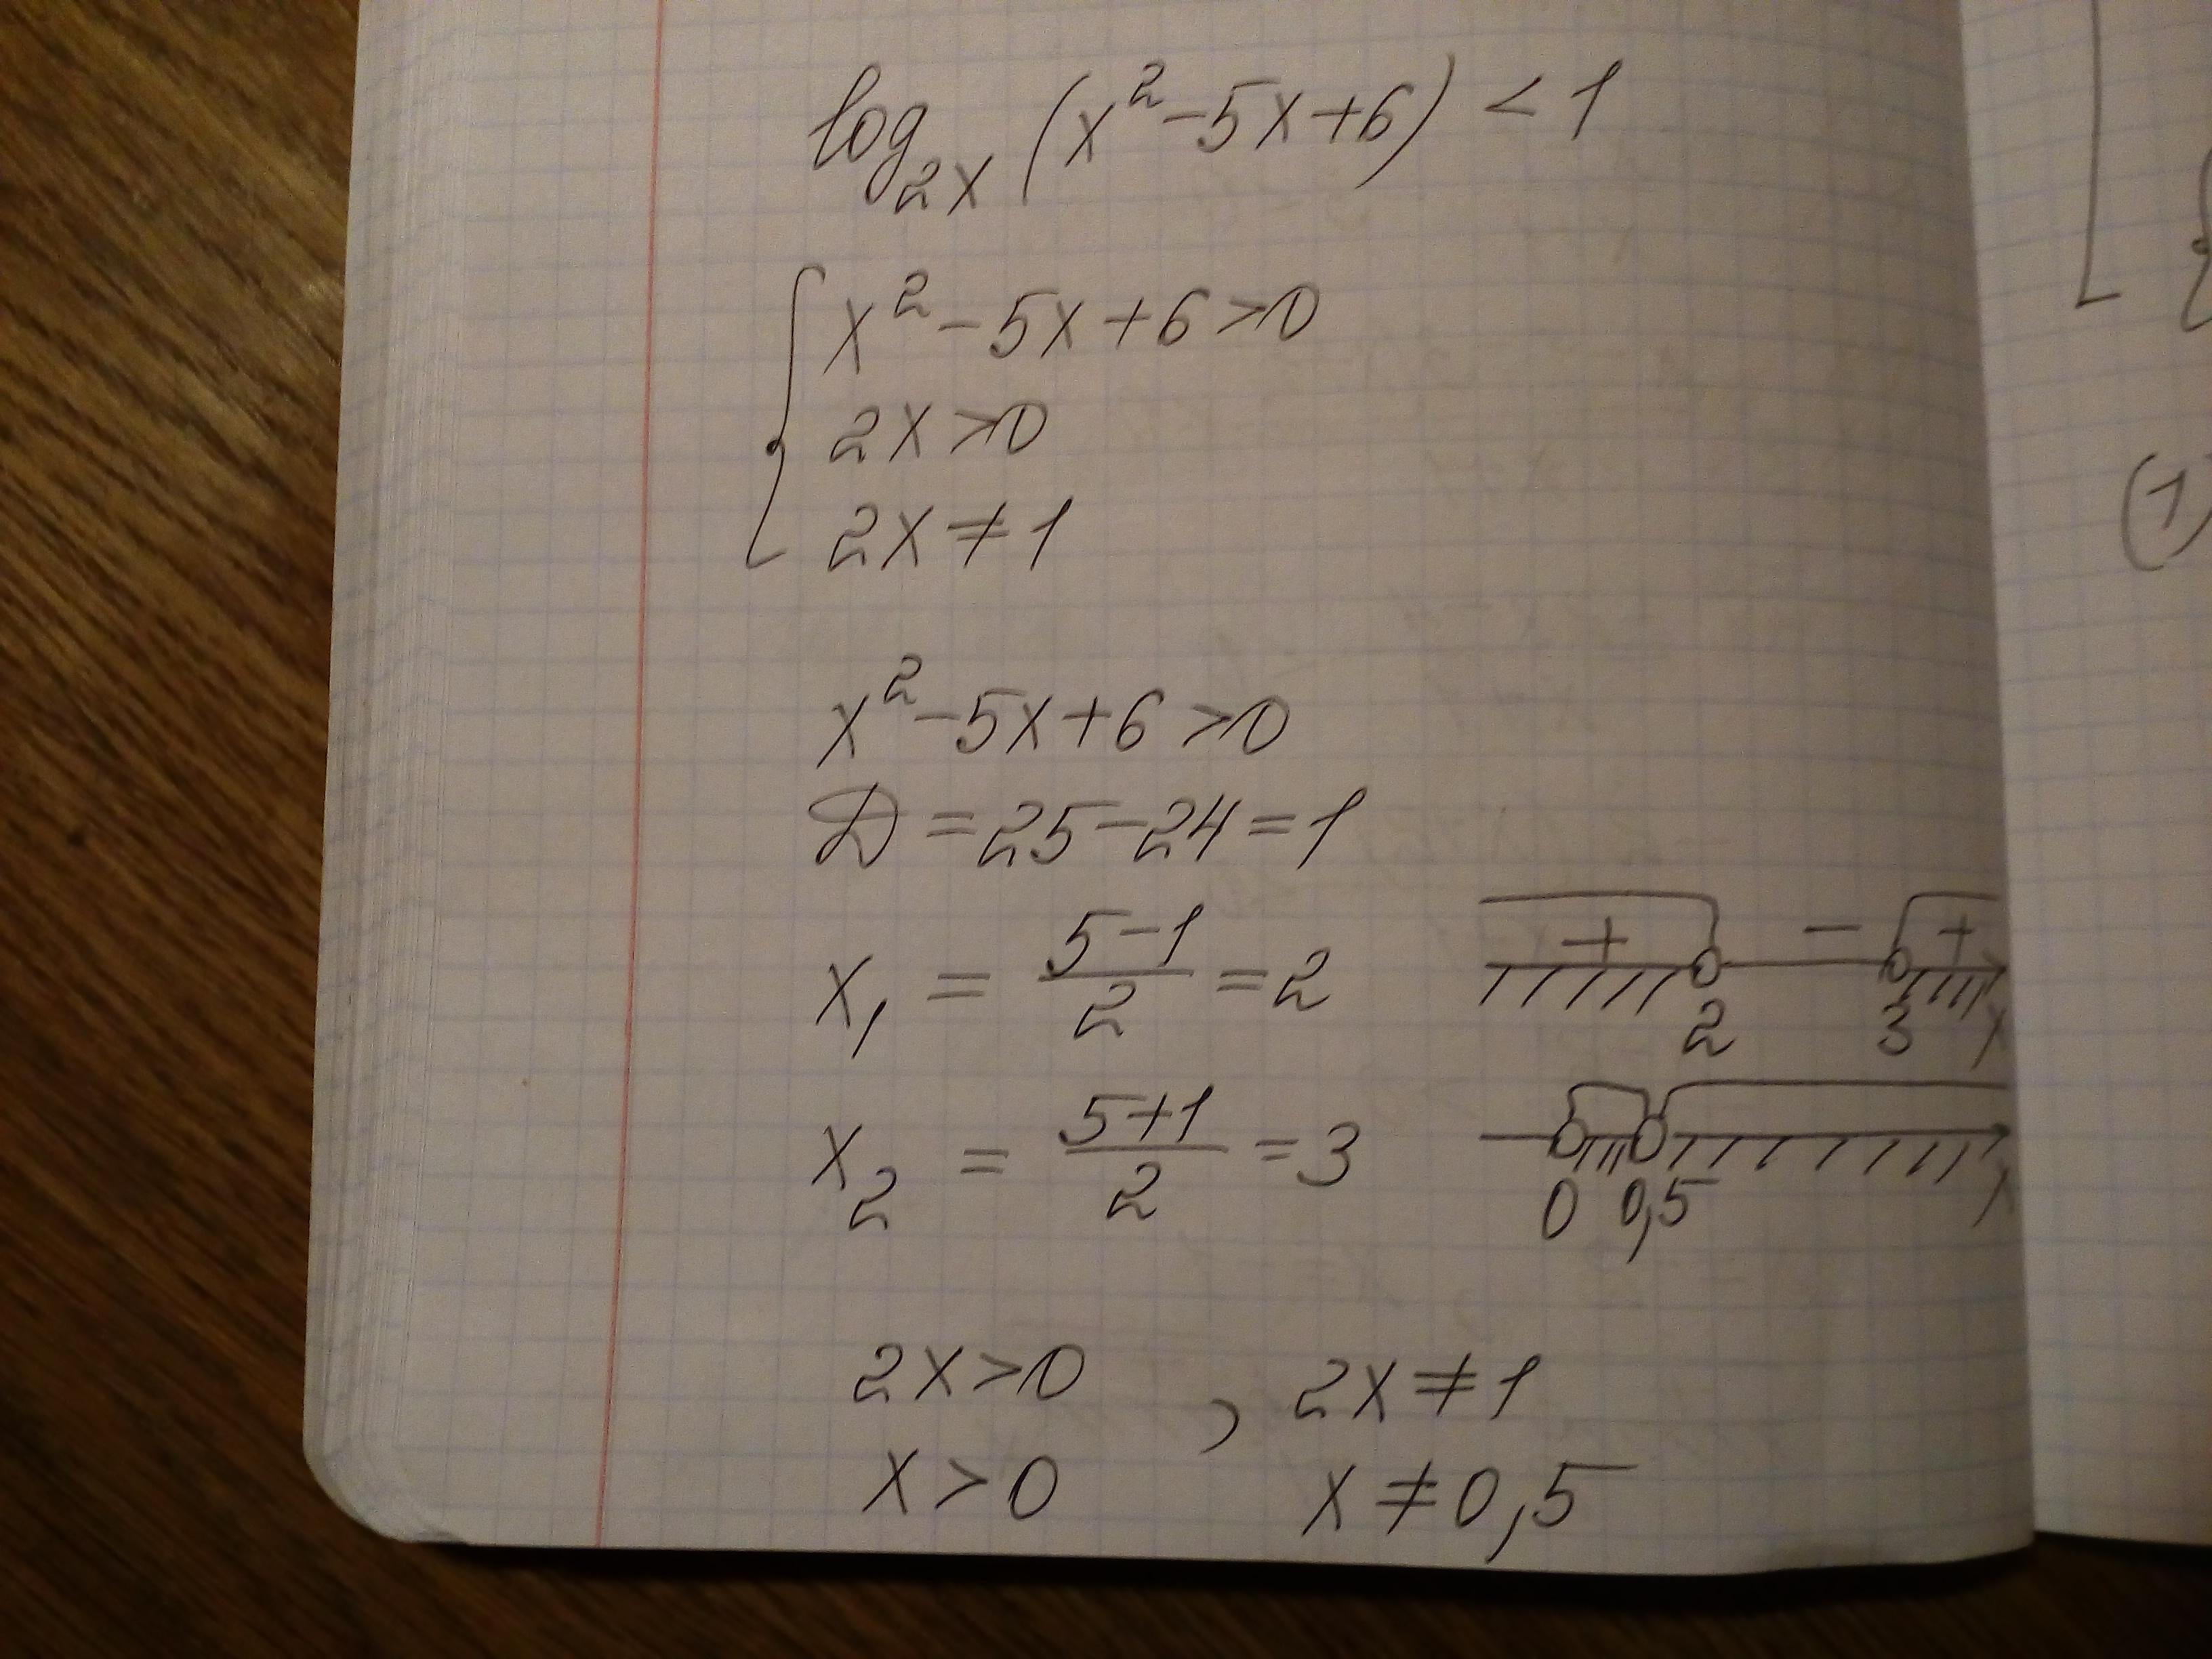 log₂ₓ (x² - 5x + 6) < 1
x² - 5x + 6 > 0
2x > 0
2x ≠ 1
x² - 5x + 6 > 0
D = 25 - 24 = 1
x₁ = (5 - 1)/2 = 2
+ - +
2 3 x
x₂ = (5 + 1)/2 = 3
0 0,5 x
2x > 0 , 2x ≠ 1
x > 0 x ≠ 0,5
(1)